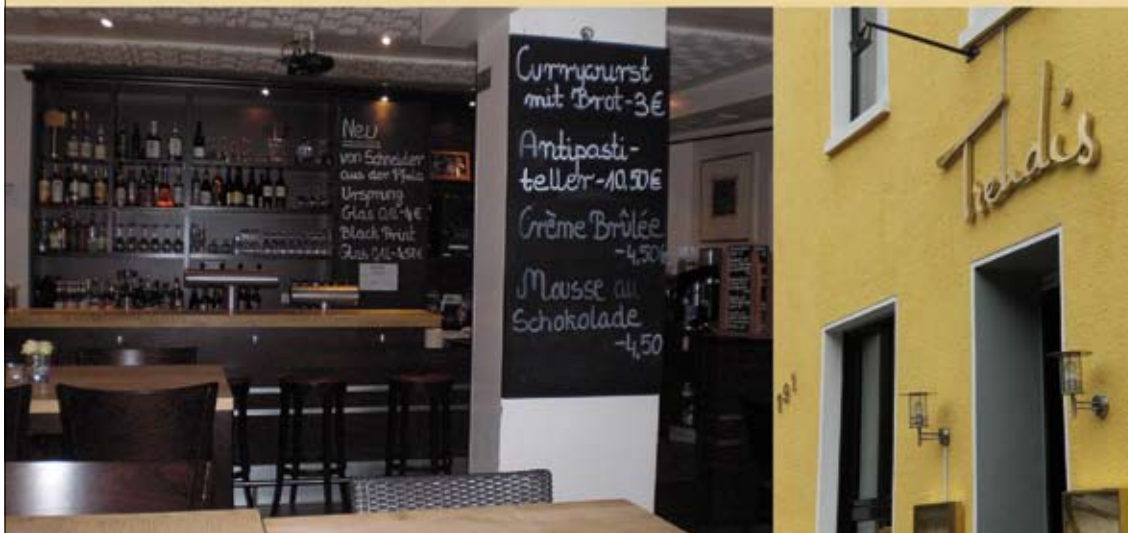 Neu
von Schneider
aus der Pfalz
Ursprung
Glas 0,1l-4€
Black Print
Glas 0,1l-4,50€
Currywurst
mit Brot-3€
Antipasti-
teller-10,50€
Crème Brûlée
-4,50€
Mousse au
Schokolade
-4,50
Trendis
191